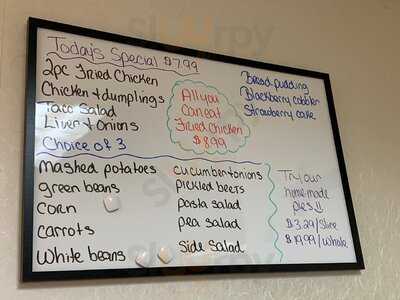 Today's Special $7.99
2pc Fried Chicken
Chicken & dumplings
Taco Salad
Liver & Onions
Choice of 3
Mashed potatoes
green beans
Corn
carrots
White beans
cucumber & onions
pickled beets
pasta salad
pea salad
side salad
All you
Can eat
Fried Chicken
$8.99
Bread pudding
Blackberry cobbler
Strawberry cake
Try our
homemade
pies!!
$3.29/Slice
$19.99/Whole